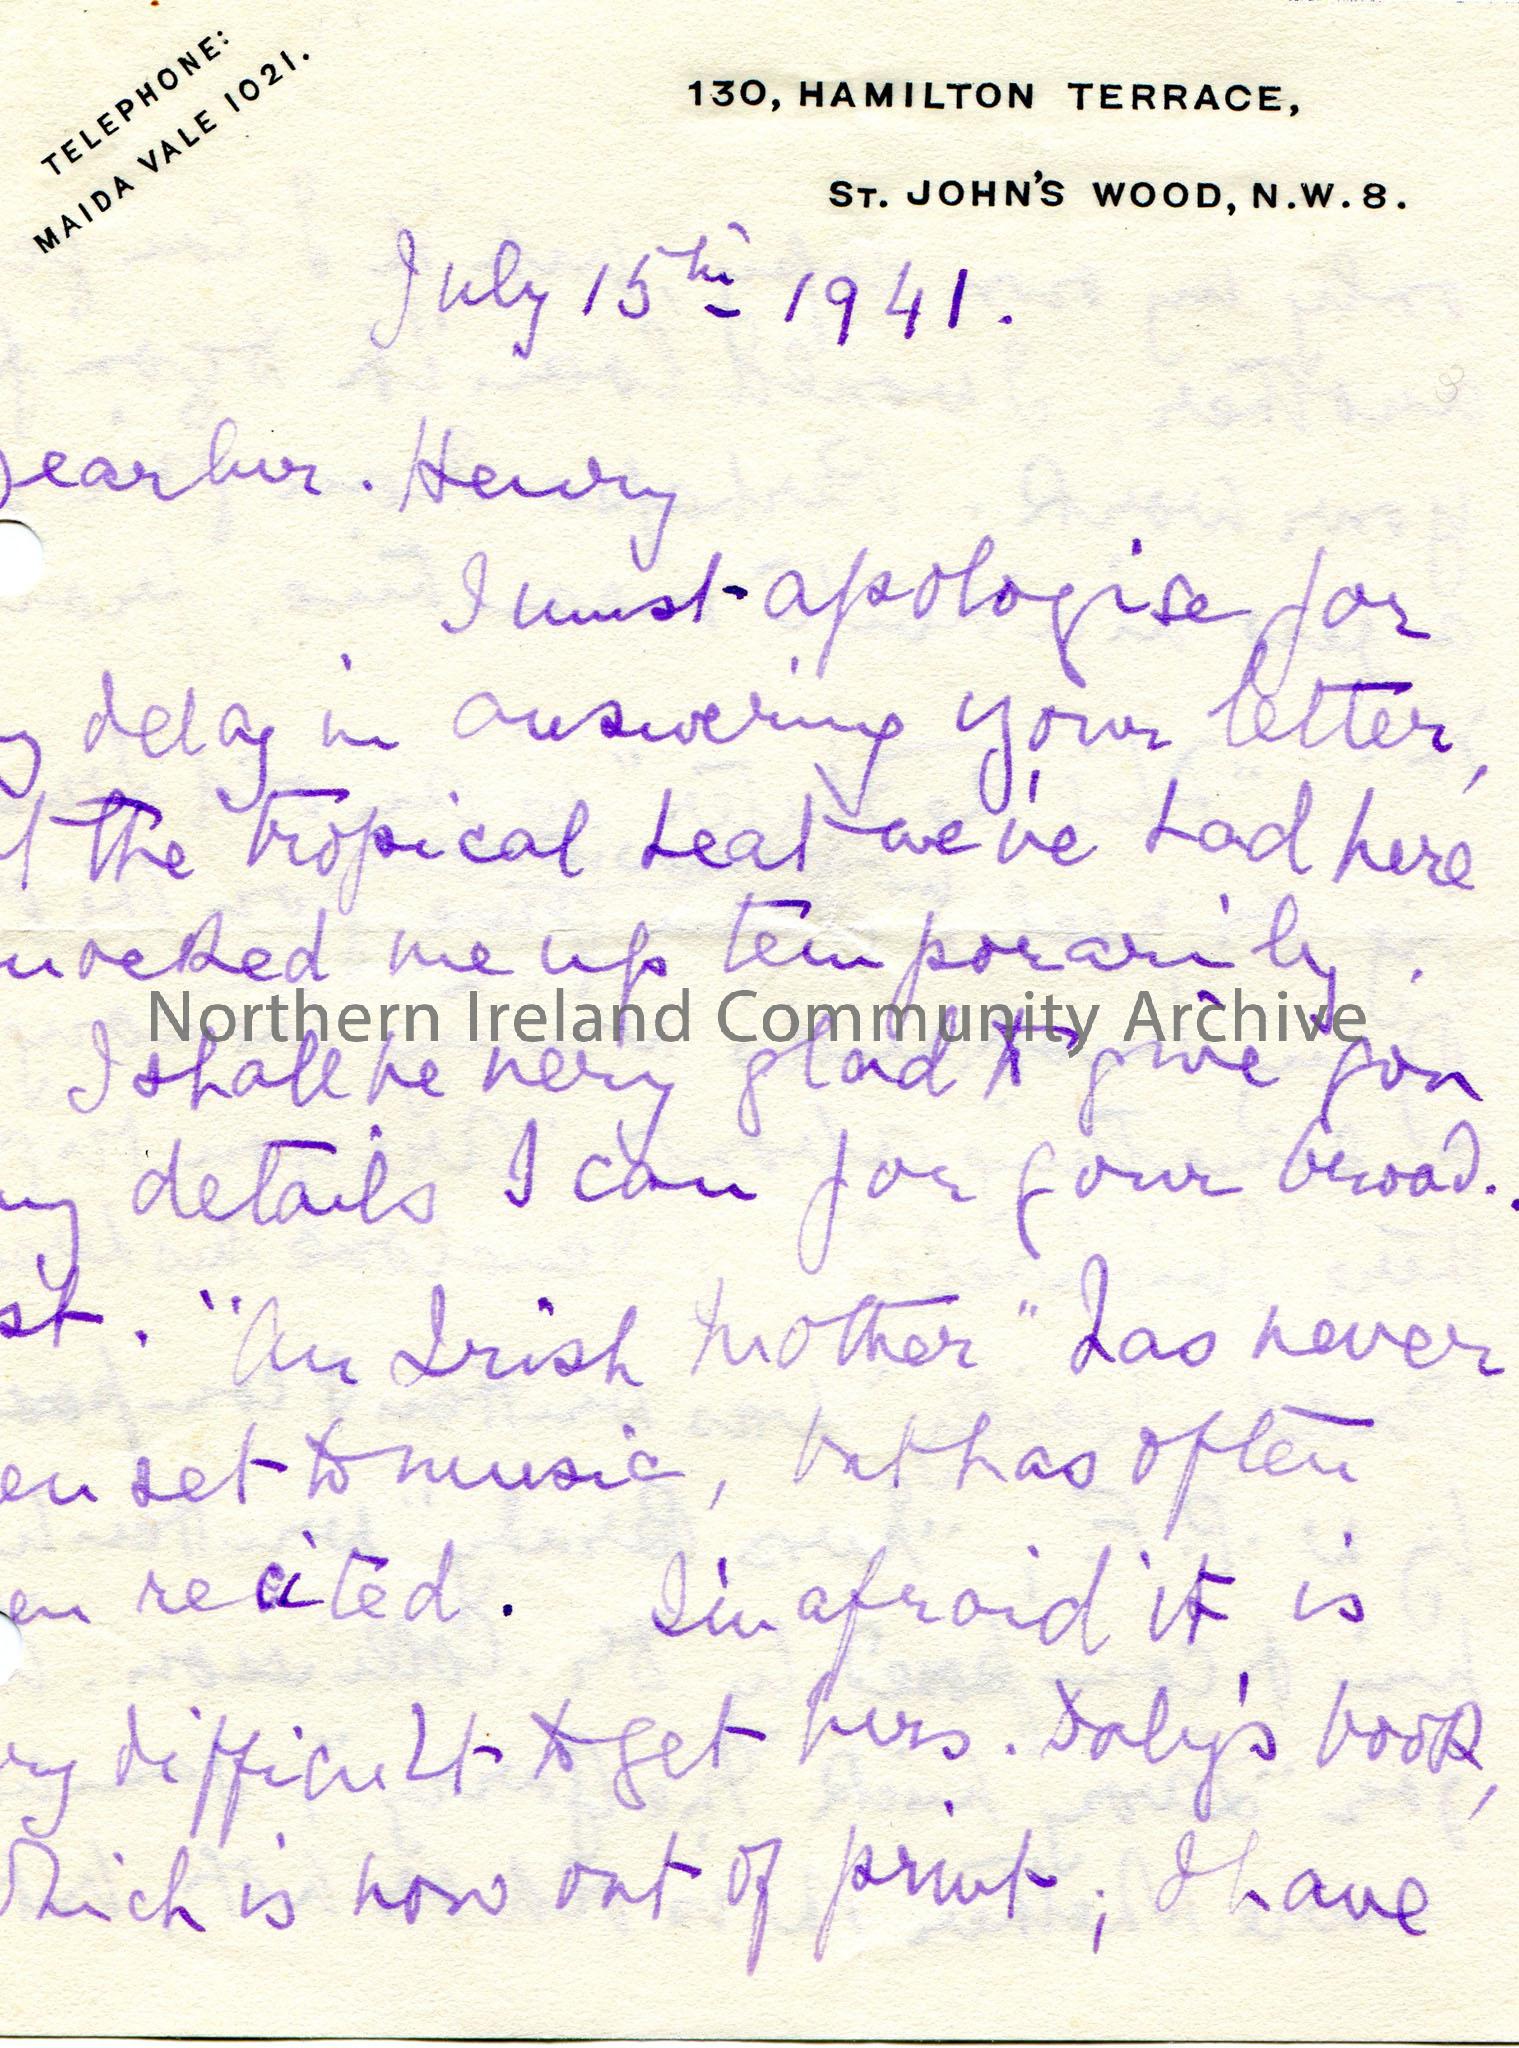 TELEPHONE:
MAIDA VALE 1021.
130, HAMILTON TERRACE,
ST. JOHN'S WOOD, N.W.8.
July 15th 1941.
Dear Mr. Henry
I must apologise for
y delay in answering your letter,
t the tropical heat we've had here
nocked me up temporarily.
Northern Ireland Community Archive
I shall be very glad to give you
ny details I can for your broad-
st. "An Irish Mother" has never
en set to music, but has often
en recited. I'm afraid it is
ry difficult to get Mrs. Doby's book,
which is now out of print; I have